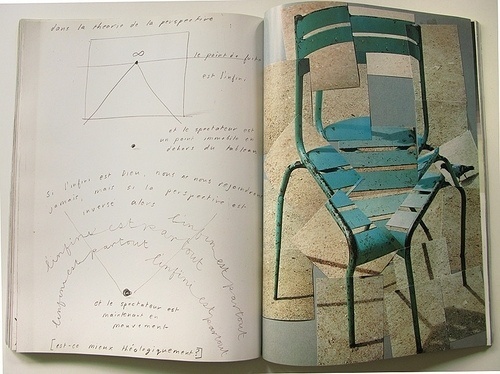 dans la théorie de la perspective
∞
le point de fuite
est l'infini
et le spectateur est
un point immobile en
dehors du tableau
si l'infini est Dieu, nous ne nous rejoindrons
jamais, mais si la perspective est
inverse alors
l'infini est partout l'infini est partout
l'infini est partout l'infini est partout
et le spectateur est
maintenant en
mouvement
[est-ce mieux théologiquement?]